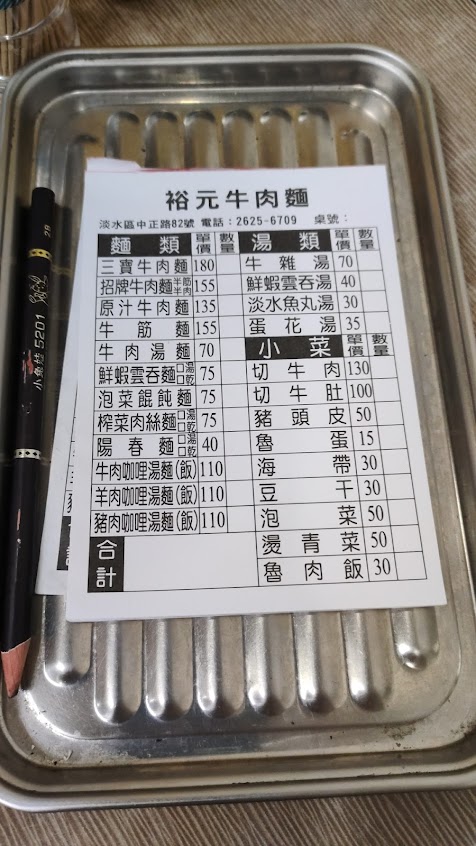 裕元牛肉麵
淡水區中正路82號 電話：2625-6709 桌號：
麵類 單價 數量
三寶牛肉麵 180
招牌牛肉麵 半筋半肉 155
原汁牛肉麵 135
牛筋麵 155
牛肉湯麵 70
鮮蝦雲吞麵 □湯□乾 75
泡菜餛飩麵 75
榨菜肉絲麵 □湯□乾 75
陽春麵 □湯□乾 40
牛肉咖哩湯麵(飯) 110
羊肉咖哩湯麵(飯) 110
豬肉咖哩湯麵(飯) 110
合計
湯類 單價 數量
牛雜湯 70
鮮蝦雲吞湯 40
淡水魚丸湯 30
蛋花湯 35
小菜 單價 數量
切牛肉 130
切牛肚 100
豬頭皮 50
魯蛋 15
海帶 30
豆干 30
泡菜 50
燙青菜 50
魯肉飯 30
2B
5201